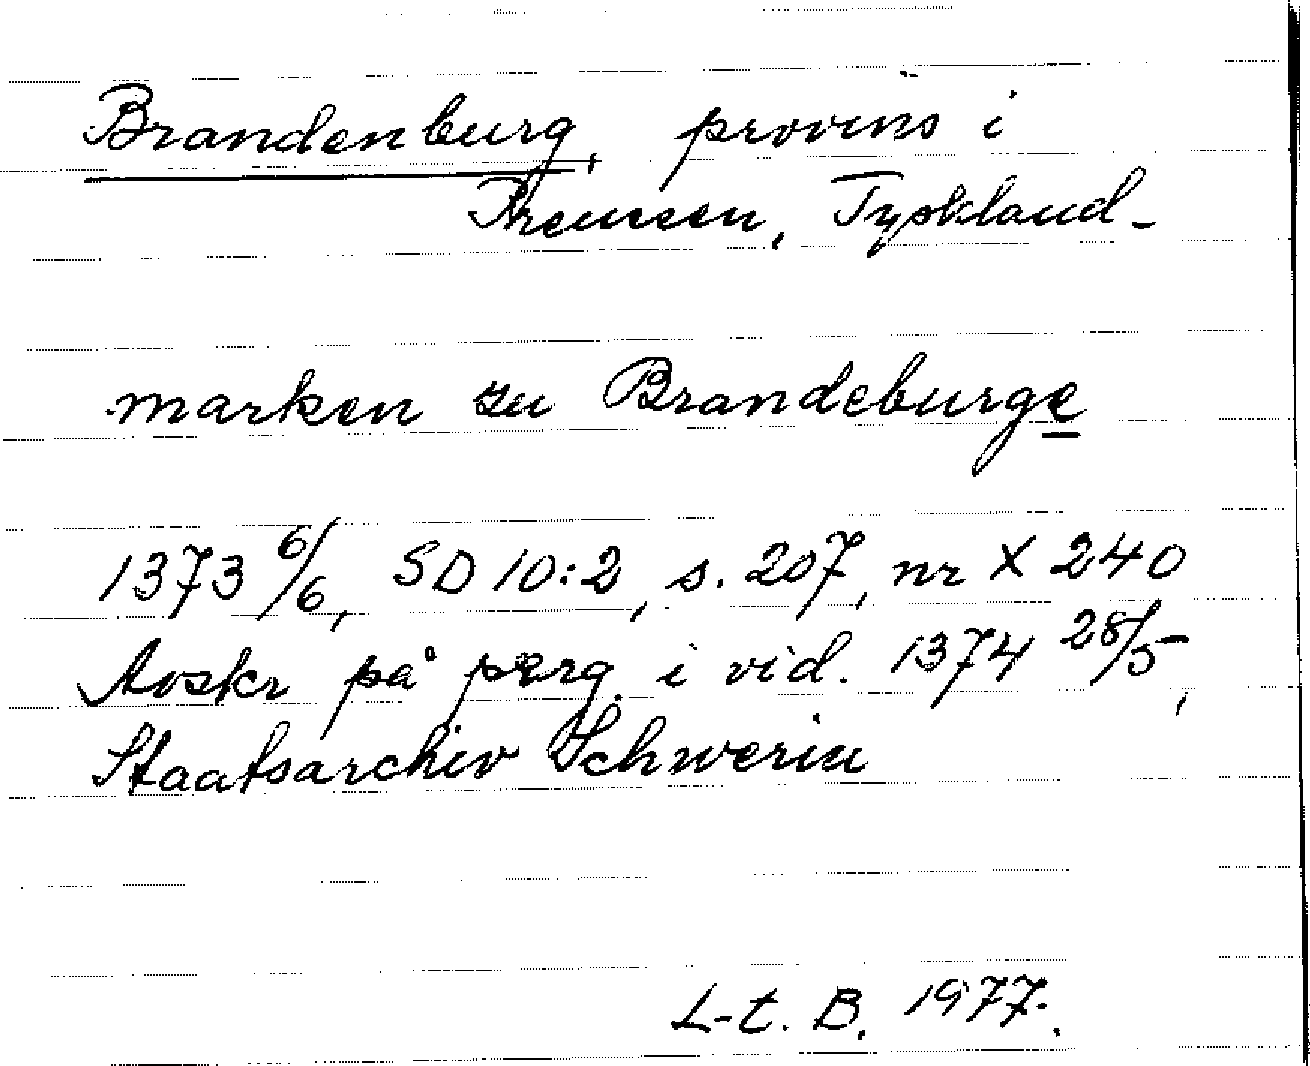 Brandenburg, provins i
Preussen, Tyskland-
marken zu Brandeburge
1373 6/6, SD 10:2, s. 207, nr X 240
Avskr på perg. i vid. 1374 28/5,
Staatsarchiv Schwerin
L-t. B. 1977.